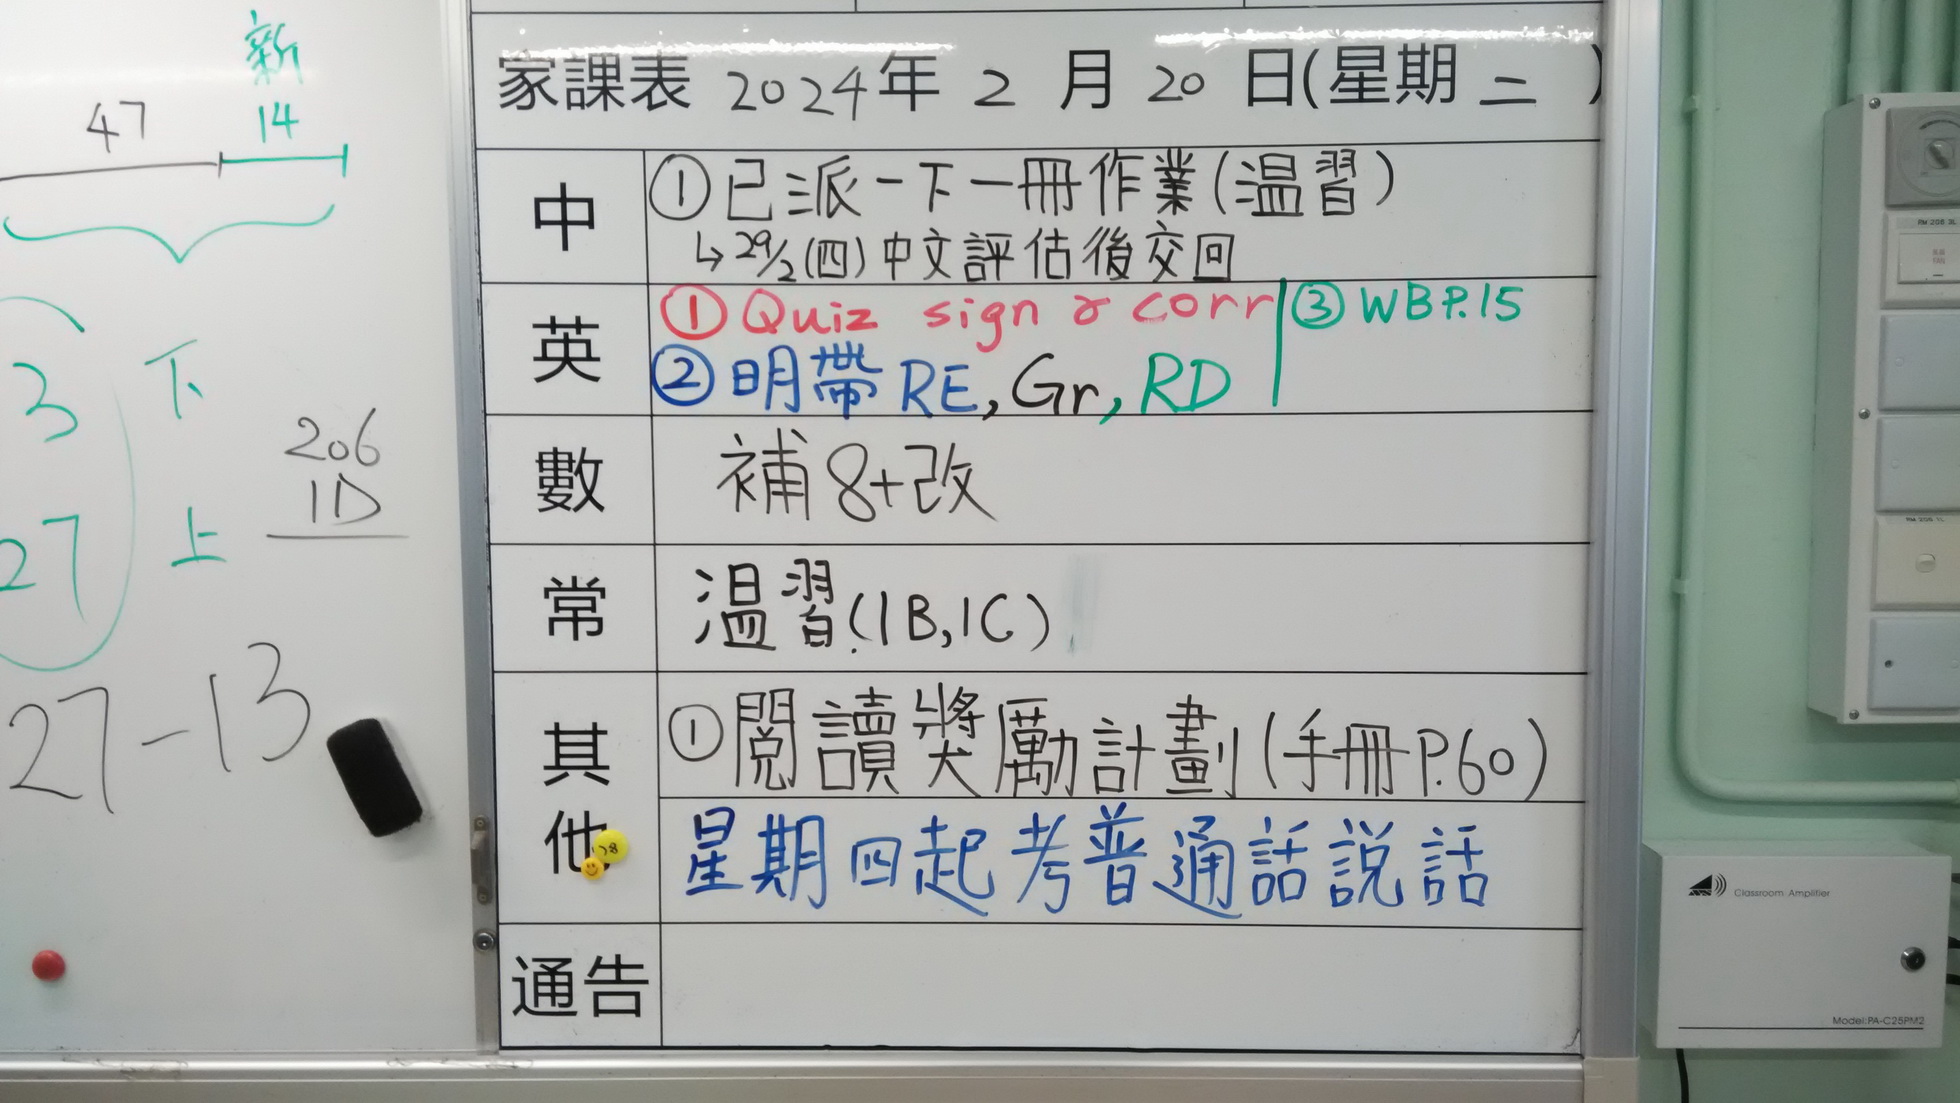 新
47
14
3
下
27
上
206
1D
27-13
家課表 2024年 2 月 20 日(星期 二 )
中
①已派一下一冊作業(温習)
↳29/2(四)中文評估後交回
英
①Quiz sign & corr
③WBP.15
②明帶RE,Gr,RD
數
補8+改
常
温習(1B,1C)
其他
①閱讀獎勵計劃(手冊P.60)
星期四起考普通話説話
通告
Classroom Amplifier
Model:PA-C25PM2